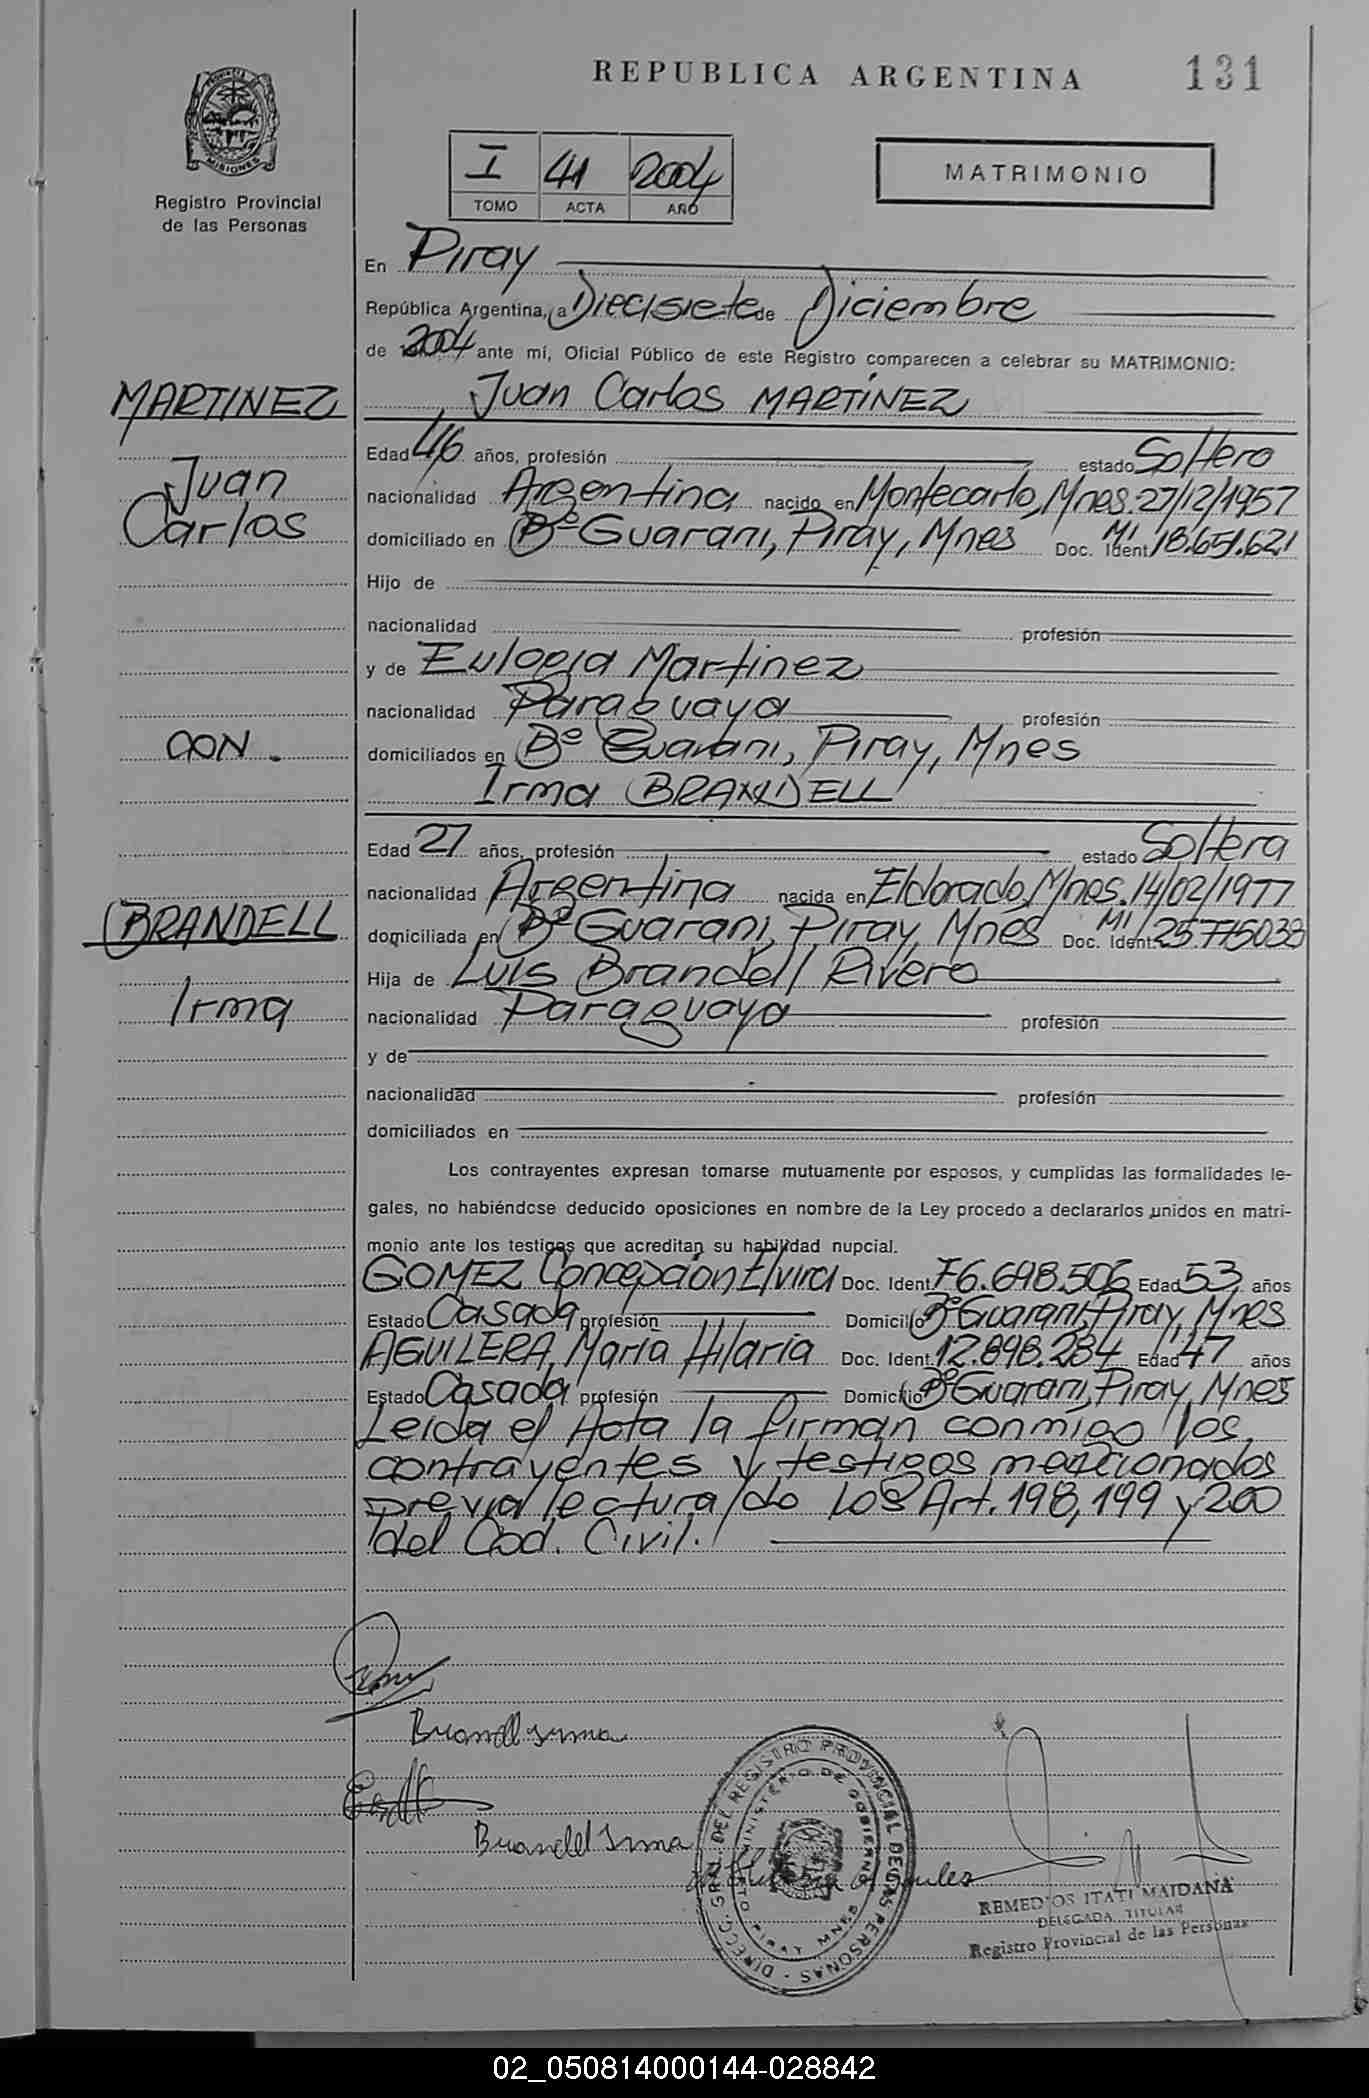 REPUBLICA ARGENTINA 131
PROVINCIA DE
MISIONES
Registro Provincial
de las Personas
I 41 2004
TOMO ACTA AÑO
MATRIMONIO
En Piray
República Argentina, a Diecisiete de Diciembre
de 2004 ante mí, Oficial Público de este Registro comparecen a celebrar su MATRIMONIO:
MARTINEZ
Juan Carlos MARTÍNEZ
Edad 46 años, profesión estado Soltero
Juan
nacionalidad Argentina nacido en Montecarlo, Mnes. 27/12/1957
Carlos
domiciliado en Bº Guarani, Piray, Mnes Doc. Ident. MI 18.651.621
Hijo de
nacionalidad profesión
y de Eulogia Martinez
nacionalidad Paraguaya profesión
CON.
domiciliados en Bº Guarani, Piray, Mnes
Irma BRANDELL
Edad 27 años, profesión estado Soltera
nacionalidad Argentina nacida en Eldorado, Mnes. 14/02/1977
BRANDELL
domiciliada en Bº Guarani, Piray, Mnes Doc. Ident. MI 25.775038
Hija de Luis Brandell Rivero
Irma
nacionalidad Paraguaya profesión
y de
nacionalidad profesión
domiciliados en
Los contrayentes expresan tomarse mutuamente por esposos, y cumplidas las formalidades le-
gales, no habiéndose deducido oposiciones en nombre de la Ley procedo a declararlos unidos en matri-
monio ante los testigos que acreditan su habilidad nupcial.
GOMEZ Concepcion Elvira Doc. Ident. F6.698.506 Edad 53 años
Estado Casada profesión Domicilio Bº Guarani, Piray, Mnes
AGUILERA, María Hilaria Doc. Ident. 12.898.284 Edad 47 años
Estado Casada profesión Domicilio Bº Guarani, Piray, Mnes
Leida el Acta la firman conmigo los
contrayentes y testigos mencionados
previa lectura/do los Art. 198, 199 y 200
del Cod. Civil.
Brandell Irma
Brandel Irma
DIRECC. GRAL. DEL REGISTRO PROVINCIAL DE LAS PERSONAS
MINISTERIO DE GOBIERNO
PIRAY MNES
REMEDIOS ITATI MAIDANA
DELEGADA TITULAR
Registro Provincial de las Personas
02_050814000144-028842